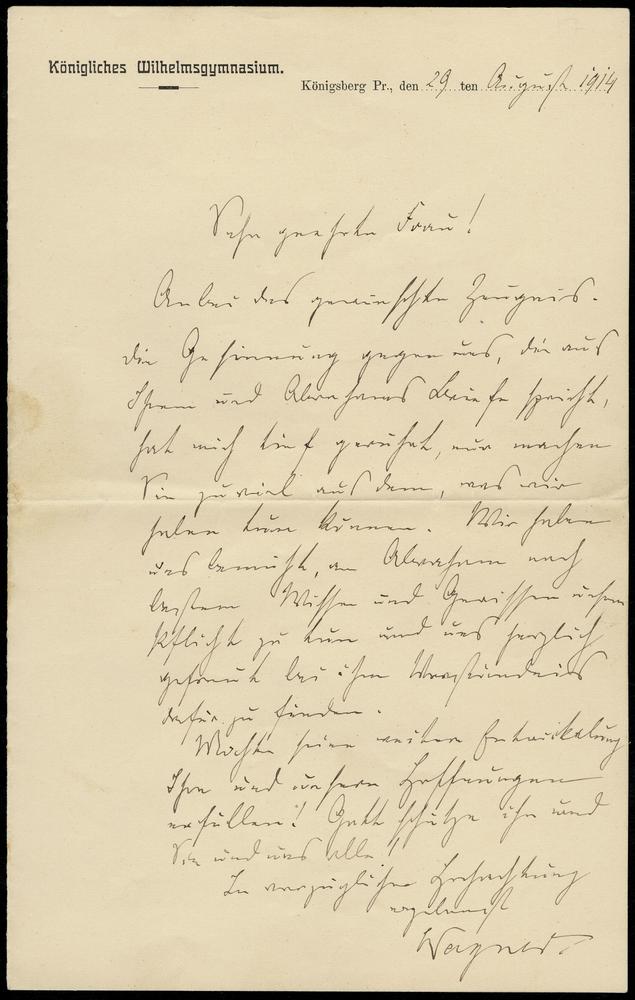 Königliches Wilhelmsgymnasium.
Königsberg Pr., den 29 ten August 1914
Sehr geehrte Frau!
Anbei das gewünschte Zeugnis.
Die Gesinnung gegen uns, die aus
Ihrem und Abrahams Briefe spricht,
hat mich tief gerührt, nur machen
Sie zuviel aus dem, was wir
haben tun können. Wir haben
uns bemüht, an Abraham nach
bestem Wissen und Gewissen unsere
Pflicht zu tun und uns herzlich
gefreut bei ihm Verständnis
dafür zu finden.
Möchte seine weitere Entwickelung
Ihre und unsere Hoffnungen
erfüllen! Gott schütze ihn und
Sie und uns alle!
In vorzüglicher Hochachtung
ergebenst
Wagner